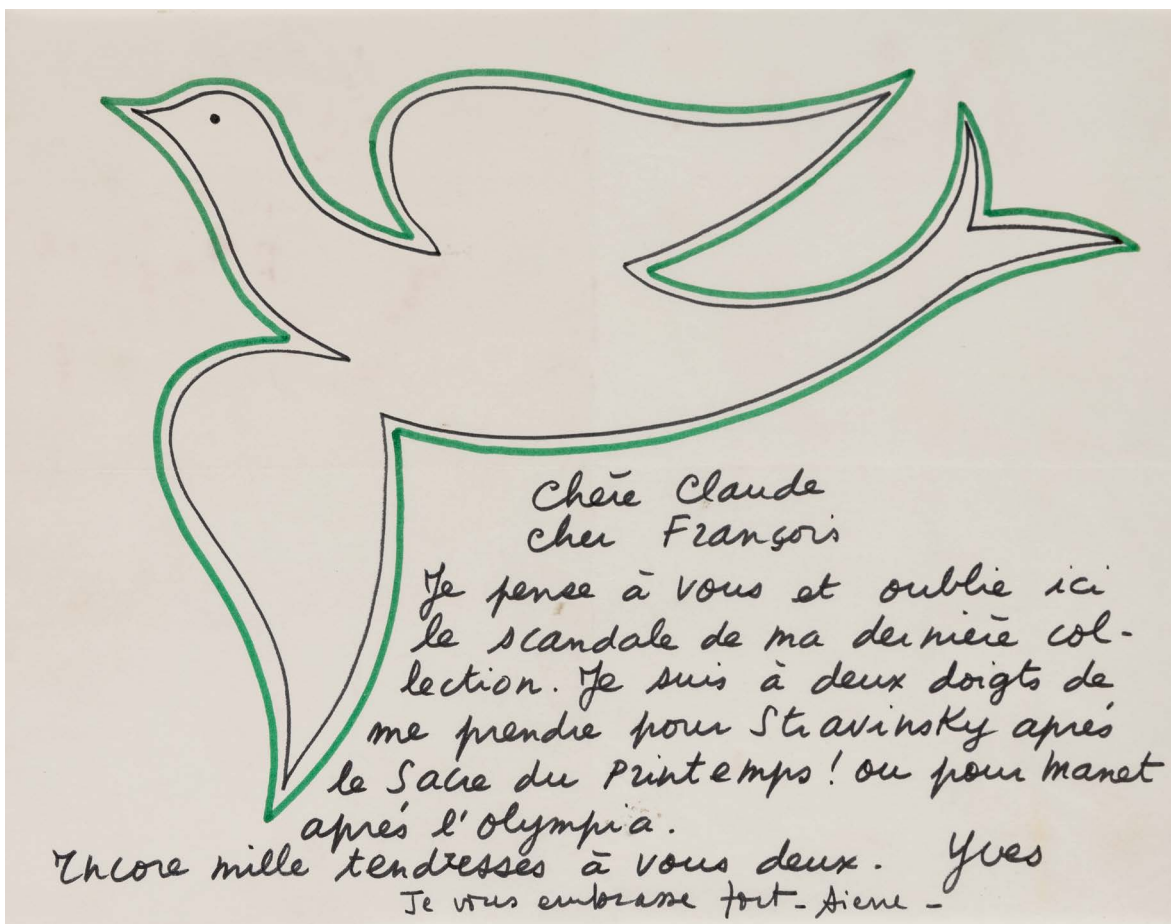 Chère Claude
cher François
Je pense à vous et oublie ici
le scandale de ma dernière col-
lection. Je suis à deux doigts de
me prendre pour Stravinsky aprés
le Sacre du Printemps ! ou pour Manet
aprés l'olympia.
Encore mille tendresses à vous deux. Yves
Je vous embrasse fort - Pierre -